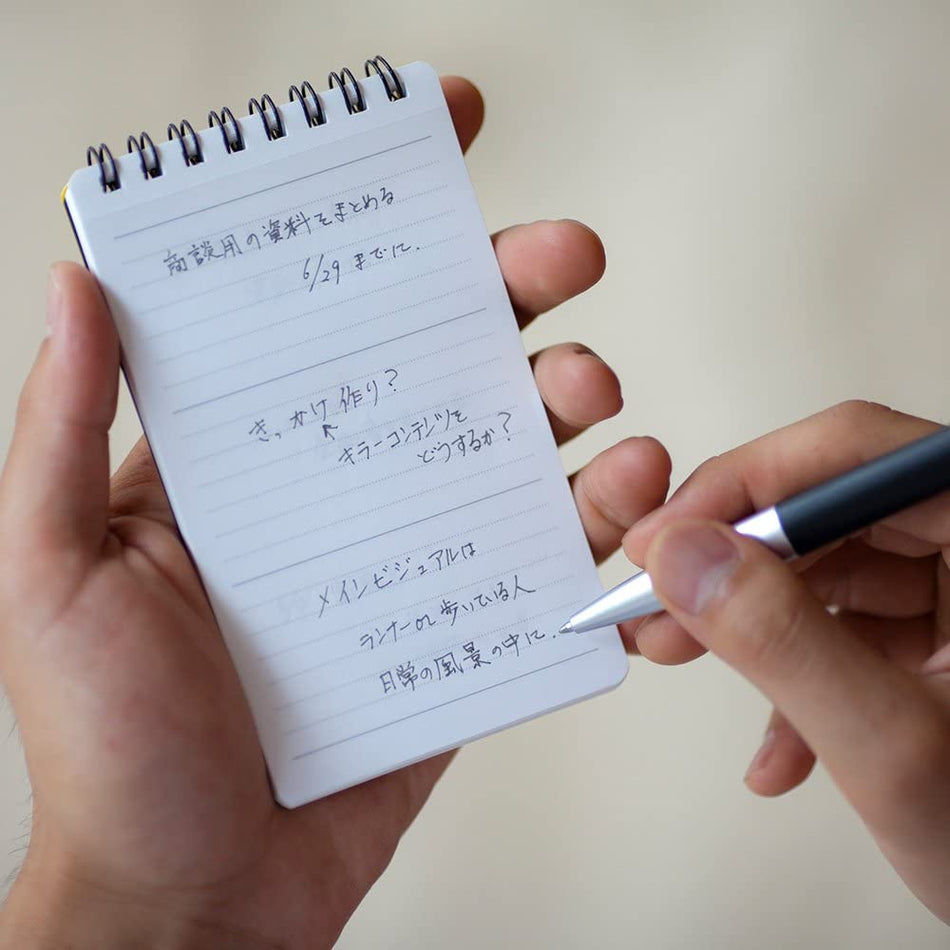 商談用の資料をまとめる
6/29 までに.
きっかけ作り?
キラーコンテンツを
どうするか?
メインビジュアルは
ランナーor歩いている人
日常の風景の中に.